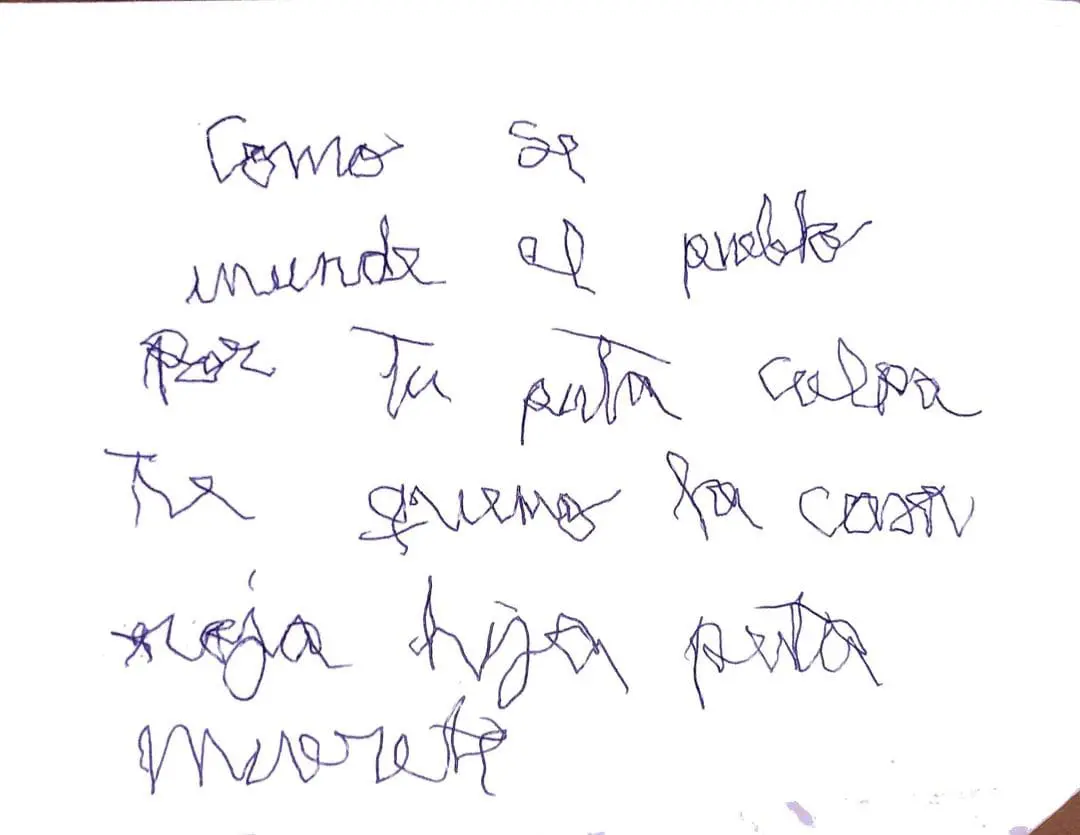 Como se
inunde el pueblo
Por Tu puta culpa
Te quemo la casa
vieja hija puta
muerete